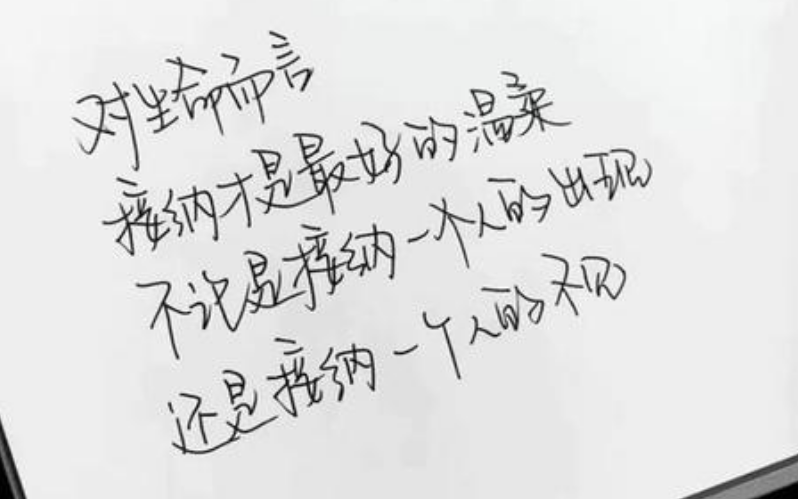 对生命而言
接纳才是最好的温柔
不论是接纳一个人的出现
还是接纳一个人的不见